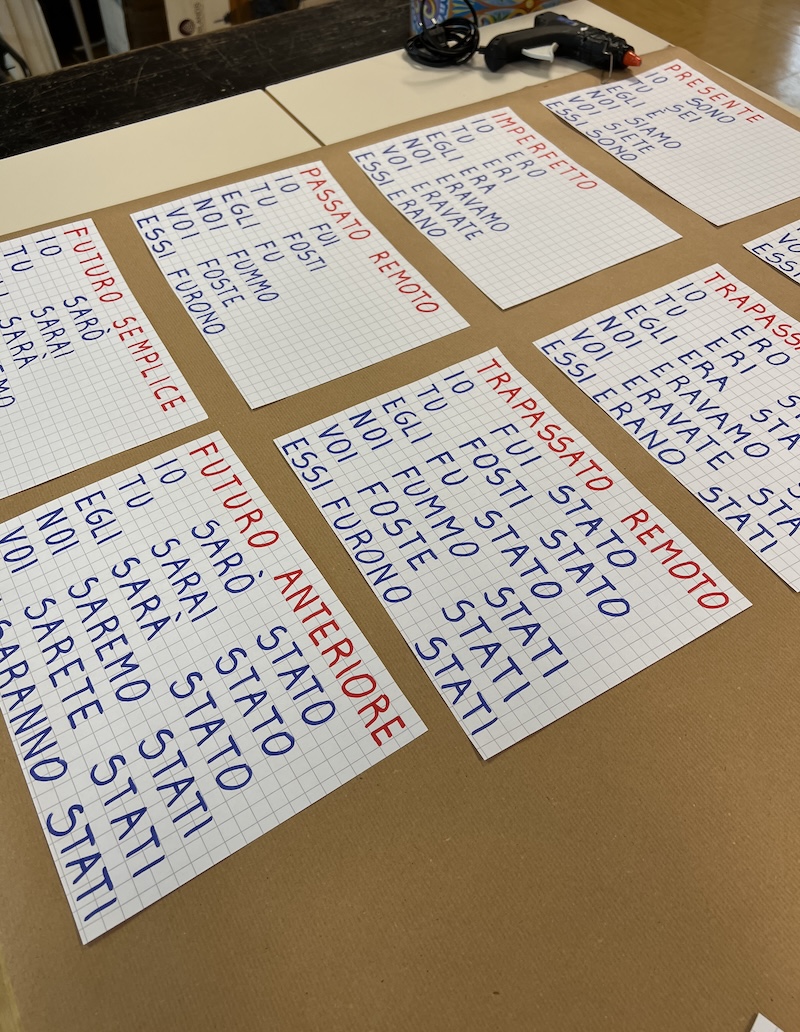 FUTURO SEMPLICE
IO SARÒ
TU SARAI
SARÀ
PASSATO REMOTO
IO FUI
TU FOSTI
EGLI FU
NOI FUMMO
VOI FOSTE
ESSI FURONO
IMPERFETTO
IO ERO
TU ERI
EGLI ERA
NOI ERAVAMO
VOI ERAVATE
ESSI ERANO
PRESENTE
IO SONO
TU SEI
EGLI E'
NOI SIAMO
VOI SIETE
ESSI SONO
FUTURO ANTERIORE
IO SARÒ STATO
TU SARAI STATO
EGLI SARÀ STATO
NOI SAREMO STATI
VOI SARETE STATI
SARANNO STATI
TRAPASSATO REMOTO
IO FUI STATO
TU FOSTI STATO
EGLI FU STATO
NOI FUMMO STATI
VOI FOSTE STATI
ESSI FURONO STATI
TRAPASSA
IO ERO
TU ERI ST
EGLI ERA STA
NOI ERAVAMO
VOI ERAVATE STA
ESSI ERANO STATI
VO
ESSI